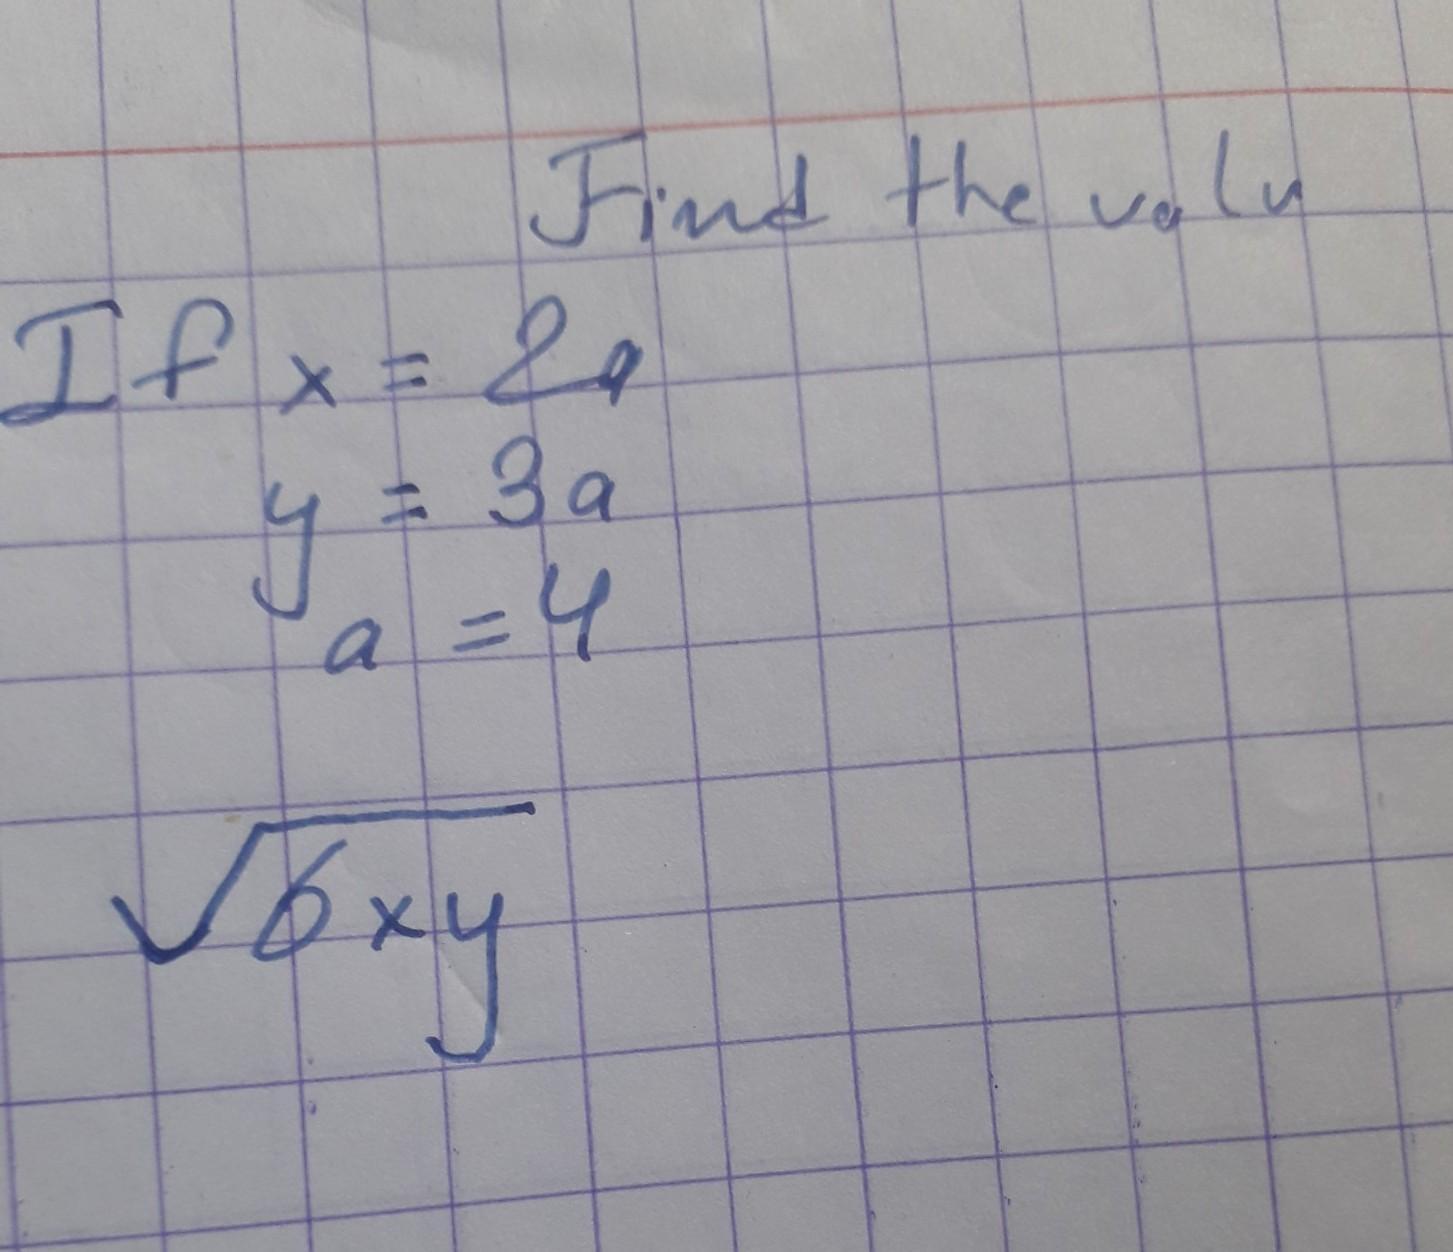 Find the valu
If x = 2a
y = 3a
a = 4
√6xy